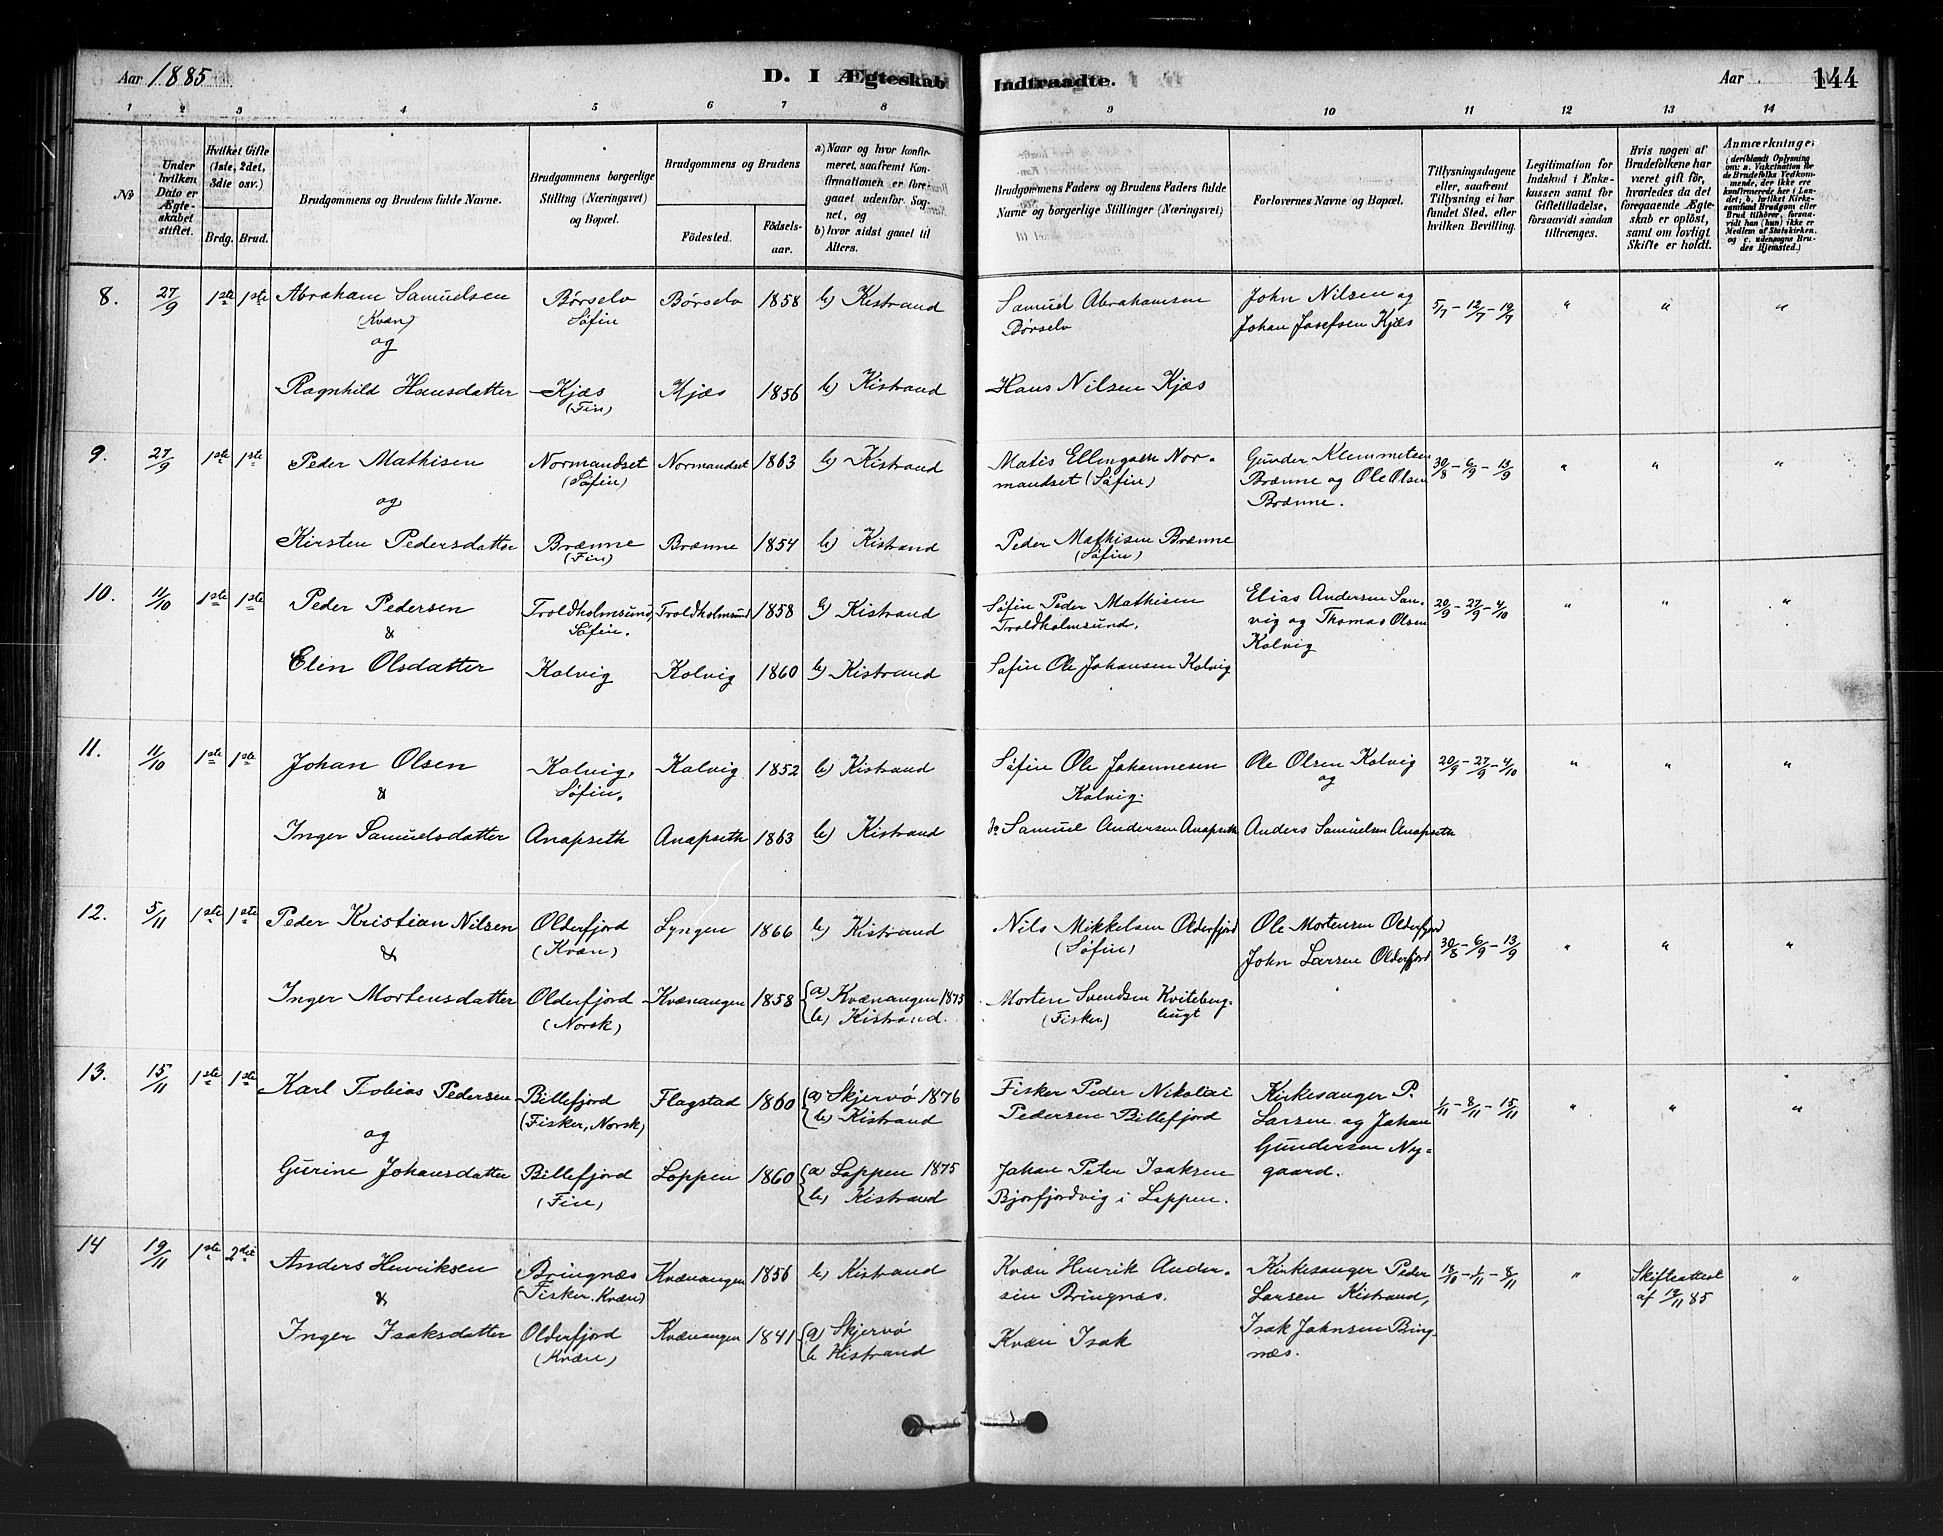 Aar 1885. D. I Ægteskab Indtraadte. Aar 144
1 2 3 4 5 6 7 8 9 10 11 12 13 14
No
Under hvilken Dato er Ægteskabet stiftet.
Hvilket Gifte (1ste, 2det, 3die osv.)
Brdg. Brud.
Brudgommens og Brudens fulde Navne.
Brudgommens borgerlige Stilling (Næringsvei) og Bopæl.
Brudgommens og Brudens
Fødested. Fødselsaar.
a) Naar og hvor konfirmeret, saafremt Konfirmationen er foregaaet udenfor Sognet, og
b) hvor sidst gaaet til Alters.
Brudgommens Faders og Brudens Faders fulde Navne og borgerlige Stillinger (Næringsvei)
Forlovernes Navne og Bopæl.
Tillysningsdagene eller, saafremt Tillysning ei har fundet Sted, efter hvilken Bevilling.
Legitimation for Indskud i Enkekassen samt for Giftetilladelse, forsaavidt saadan tiltrænges.
Hvis nogen af Brudefolkene har været gift før, hvorledes da det foregaaende Ægteskab er opløst, samt om lovligt Skifte er holdt.
Anmærkninger (deriblandt Oplysning om: a. Vakcination for de Brudefolks Vedkommende, der ikke ere konfirmerede her i Landet; b. hvilket Kirkesamfund Brudgom eller Brud tilhører, forsaavidt han (hun) ikke er Medlem af Statskirken, og c. udensogns Brudes Hjemsted.)
8. 27/9 1ste 1ste Abraham Samuelsen Børselv Børselv 1858 b) Kistrand Samuel Abrahamsen John Nilsen og 5/7 - 12/7 - 19/7 " " "
(Kvæn) Søfin Børselv Johan Josefsen Kjæs
og
Ragnhild Hansdatter Kjæs Kjæs 1856 b) Kistrand Hans Nilsen Kjæs
(Fin)
9. 27/9 1ste 1ste Peder Mathisen Normandset Normandset 1863 b) Kistrand Matis Ellingsen Nor- Gunder Klemmetsen 30/8 - 6/9 - 13/9 " " "
(Søfin) mandset (Søfin) Brænne og Ole Olsen
og Brænne.
Kirsten Pedersdatter Brænne Brænne 1854 b) Kistrand Peder Mathisen Brænne
(Fin) (Søfin)
10. 11/10 1ste 1ste Peder Pedersen Troldholmsund, Troldholmsund 1858 b) Kistrand Søfin Peder Mathisen Elias Andersen San- 20/9 - 27/9 - 4/10 " " "
& Søfin. Troldholmsund, vig og Thomas Olsen
Elen Olsdatter Kolvig Kolvig 1860 b) Kistrand Søfin Ole Johansen Kolvig Kolvig
11. 11/10 1ste 1ste Johan Olsen Kolvig, Kolvig 1852 b) Kistrand Søfin Ole Johannesen Ole Olsen Kolvig 20/9 - 27/9 - 4/10 " " "
& Søfin. Kolvig. og
Inger Samuelsdatter Anapseth Anapseth 1863 b) Kistrand do Samuel Andersen Anapseth Anders Samuelsen Anapseth
12. 5/11 1ste 1ste Peder Kristian Nilsen Olderfjord Lyngen 1866 b) Kistrand Nils Mikkelsen Olderfjord Ole Mortensen Olderfjord 30/8 - 6/9 - 13/9 " " "
& (Kvæn) (Søfin) John Larsen Olderfjord
Inger Mortensdatter Olderfjord Kvænangen 1858 a) Kvænangen 1875 Morten Svendsen Kviteberg-
(Norsk) b) Kistrand. (Fisker) bugt
13. 15/11 1ste 1ste Karl Tobias Pedersen Billefjord Flagstad 1860 a) Skjervø 1876 Fisker Peder Nikolai Kirkesanger P. 1/11 - 8/11 - 15/11 " " "
(Fisker, Norsk) b) Kistrand Pedersen Billefjord Larsen og Johan
og Gundersen Ny-
Gurine Johansdatter Billefjord Loppen 1860 a) Loppen 1875 Johan Peter Isaksen gaard.
(Fin) b) Kistrand Bjorfjordvig i Loppen.
14 19/11 1ste 2det Anders Henriksen Bringnæs Kvænangen 1856 b) Kistrand Kvæn Henrik Ander- Kirkesanger Peder 18/10 - 1/11 - 8/11 " Skifteattest "
& (Fisker. Kvæn) sen Bringnæs. Larsen Kistrand, af 85
Inger Isaksdatter Olderfjord Kvænangen 1841 a) Skjervø Kvæn Isak Isak Johnsen Bring-
(Kvæn) b Kistrand næs.